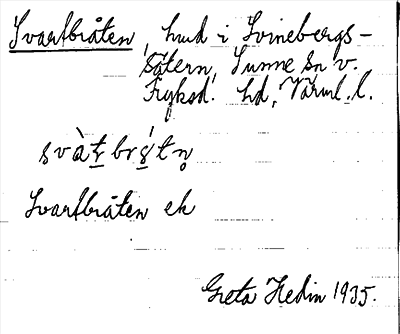 Svartbråten, hmd i Svinebergs-
sätern, Sunne sn v.
Fryksd. hd, Värml. l.
svàt̠brś̠tn̥
Svartbråten ek
Greta Hedin 1935.